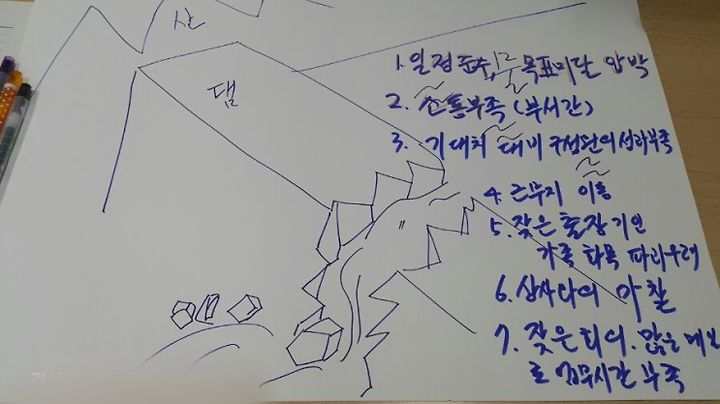 산
댐
1. 일정준수, 목표미달 압박
2. 소통부족 (부서간)
3. 기대치 대비 구성원의 성과부족
4. 근무지 이동
5. 잦은 출장 기인
가족 화목 파괴우려
6. 상사와의 마찰
7. 잦은회의. 많은 메일
로 업무시간 부족